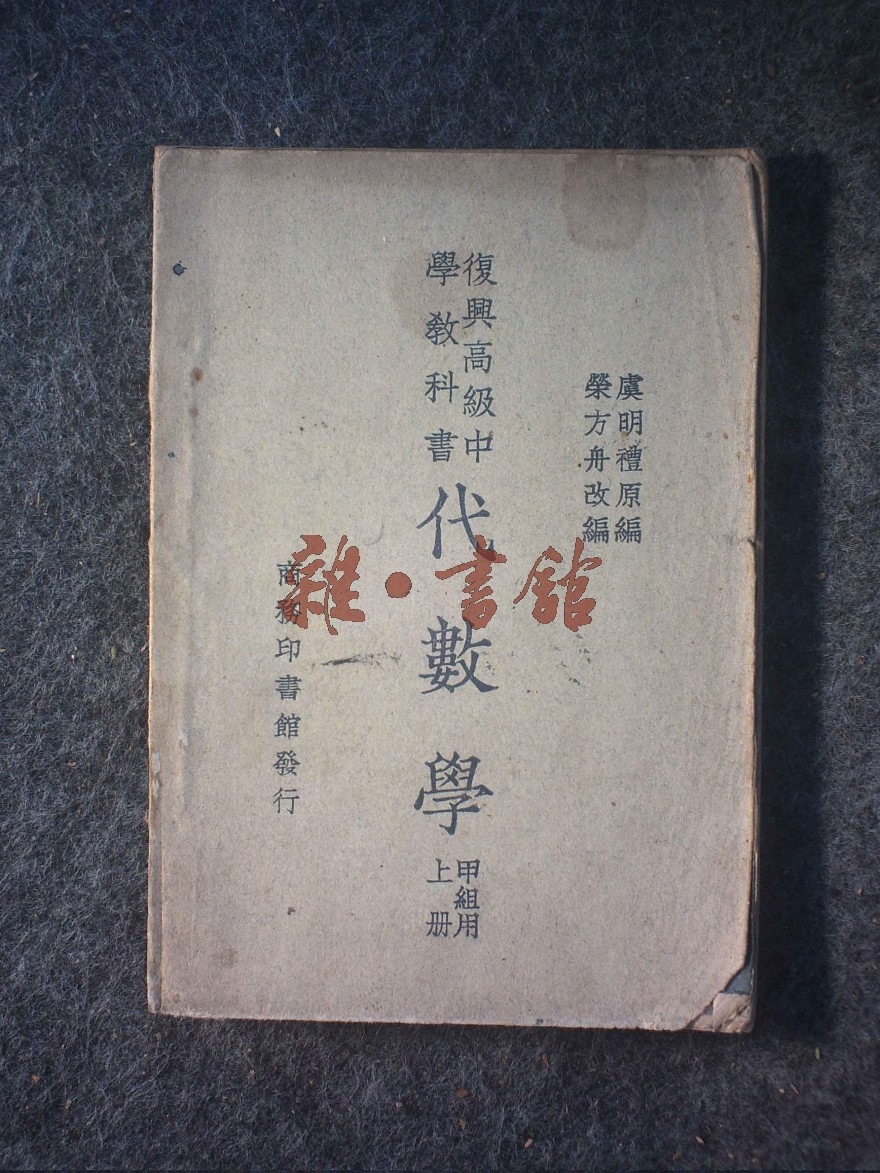 虞明禮原編
榮方舟改編
復興高級中
學教科書
代數學
甲組用
上册
商務印書館發行
雜·書舘